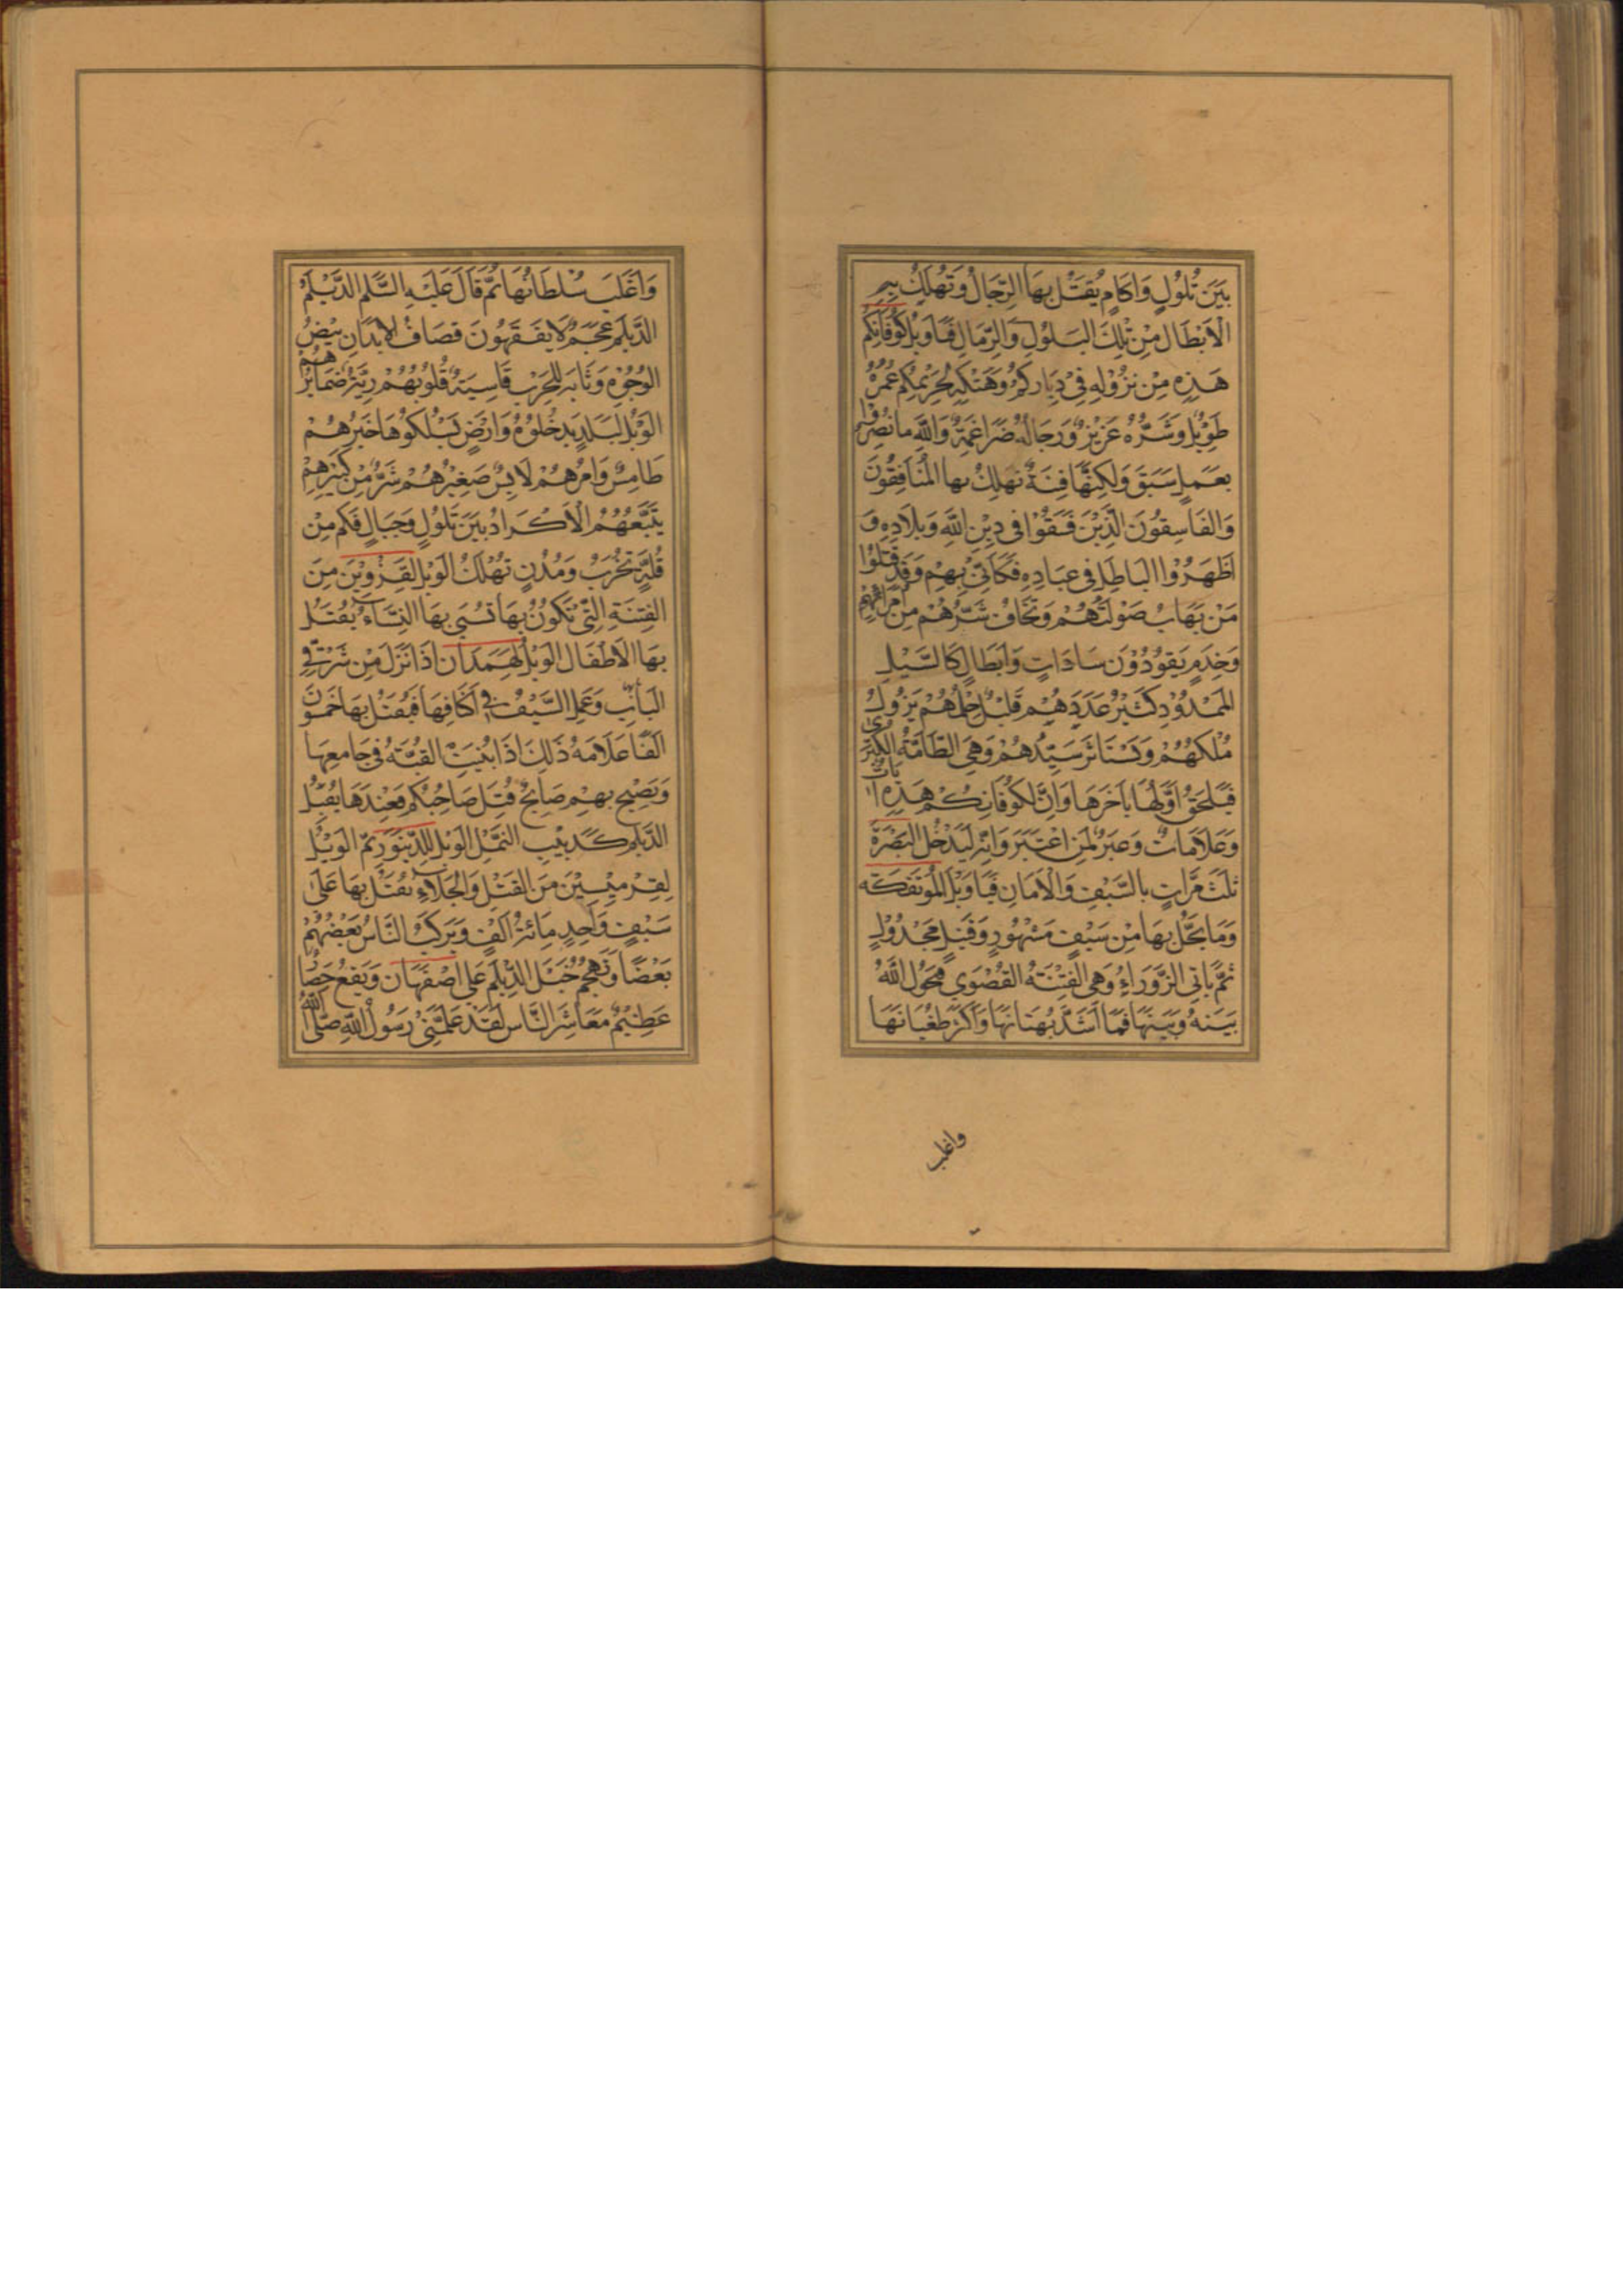 بَيْنَ تُلُولٍ وَاٰكَامٍ يُقْتَلُ بِهَا الرِّجَالُ وَتَهْلِكُ بِهِ
الْاَبْطَالُ مِنْ تِلْكَ وَالرِّمَالِ فَيَاوَيْلَ كُوفَانِكُمْ
هَذِهِ مِنْ نُزُولِهِ فِى دِيَارِكُمْ وَهَتْكِهِ لِحَرِيْمِكُمْ عُمْرُهُ
طَوِيْلٌ وَشَرُّهُ عَزِيْزٌ وَرِجَالُهُ ضَرَاغِمَةٌ وَاللّٰهِ مَا نُصِرُوا
بِعَمَلٍ سَبَقَ وَلَكِنَّهَا فِتْنَةٌ تَهْلِكُ بها الْمُنَافِقُونَ
وَالفَاسِقُونَ الَّذِيْنَ فَسَقُوْا فى دِيْنِ اللّٰهِ وَبِلَادِهِ وَ
اَظْهَرُوا البَاطِلَ فى عِبَادِهِ فَكَاَنِّى بِهِمْ وَقَدْ قَتَلُوا
مَنْ يَهَابُ صَوْلَتَهُمْ وَتَخَافُ شَرَّهُمْ مِنْ اُمَرَائِهِمْ
وَخَدَمٍ يَقُودُوْنَ سَادَاتٍ وَاَبْطَالٍ كَالسَّيْلِ
المَمْدُوْدِ كَثِيْرٌ عَدَدُهُمْ قَلِيْلٌ حِلْمُهُمْ يَزُولُ
مُلْكُهُمْ سَيِّدُهُمْ وَهِىَ الطَّامَّةُ الْكُبْرٰى
فَيَلْحَقُ اَوَّلُهَا بِاٰخِرِهَا وَاِنَّ لِكُوفَانِكُمْ هَذِهِ اٰيَاتٌ
وَعَلَامَاتٌ وَعِبَرٌ لِمَنِ اعْتَبَرَ وَاِنَّهُ لَيَدْخُلُ الْبَصْرَةَ
ثلَثَ مَرَّاتٍ بِالسَّيْفِ وَالْاَمَانِ فَيَاوَيْلَ الْمُؤْتَفِكَةِ
وَمَا يَحُلُّ بِهَا مِنْ سَيْفٍ مَشْهُورٍ وَقَتِيْلٍ مَجْدُولٍ
ثُمَّ يَاْتِى الزَّوْرَاءَ وَهِىَ الْفِتْنَةُ القُصْوَى فَيَحُولُ اللّٰهُ
بَيْنَهُ وَبَيْنَهَا فَمَا اَشَدَّ بُهْتَانَهَا وَاَكْثَرَ طُغْيَانَهَا
واغلب
وَاَغْلَبَ سُلْطَانُهَا ثُمَّ قَالَ عَلَيْهِ السَّلٰم الدَّيْلَمُ
الدَّيْلَم عَجَمٌ لَا يَفْقَهُونَ قصَافُ الاَبْدَانِ بِيْضُ
الوُجُوْهِ للْحَرْبِ قَاسِيَةٌ قُلُوبُهُمْ ضَمَايِرُهُمْ
الوَيْلُ لِبَلَدٍ يَدْخُلُوهُ وَارْضٍ يَسْلُكُوهَا خَيْرُهُمْ
طَامِسٌ وَاَمْرُهُمْ لَابِسٌ صَغِيْرُهُمْ شَرٌّ مِنْ كَبِيْرِهِمْ
يَتَّبِعُهُمُ الْاَكْرَادُ بَيْنَ تُلُولٍ وَجِبَالٍ فَكَمْ مِنْ
قُلَّةٍ تَخْرَبُ وَمُدُنٍ تَهْلَكُ الوَيْلُ لِقَزْوِيْنَ مِنَ
الفِتْنَةِ الَّتِى تَكُونُ بِهَا تُسْبَى بِهَا النِّسَاءُ يُقْتَلُ
بِهَا الْاَطْفَالُ الوَيْلُ لِهَمَدَانَ اِذَا نَزَلَ مِنْ شَرْقِىِّ
البَابِ وَعَمِلَ السَّيْفُ فِى اَكْنَافِهَا فَيُقْتَلُ بِهَا خَمْسُونَ
اَلْفًا عَلَامَةُ ذَلِكَ اِذَا بُنِيَتِ القُبَّةُ فى جَامِعِهَا
وَيَصِيْحُ بِهِمْ صَايِحٌ قُتِلَ صَاحِبُكُمْ فَعِنْدَهَا يُقْبِلُ
الدَّيْلَمُ كَدَبِيْبِ النَّمْلِ الوَيْلُ لِلدِّيْنَوَرِ ثُمَّ الوَيْلُ
لِقِرْمِيْسِيْنَ مِنَ القَتْلِ وَالْجَلَاءِ يُقْتَلُ بِهَا عَلَى
سَيْفٍ وَاحِدٍ مِائَةُ اَلْفٍ وَيَرْكَبُ النَّاسُ بَعْضُهُمْ
بَعْضًا وَتَهْجُمُ الدَّيْلَمِ عَلَى اصْفَهَان وَيَقَعُ حِصَارٌ
عَظِيْمٌ مَعَاشِرَ النَّاسِ لَقَدْ عَلَّمَنِى رَسُولُ اللّٰهِ صَلَّى اللّٰهُ